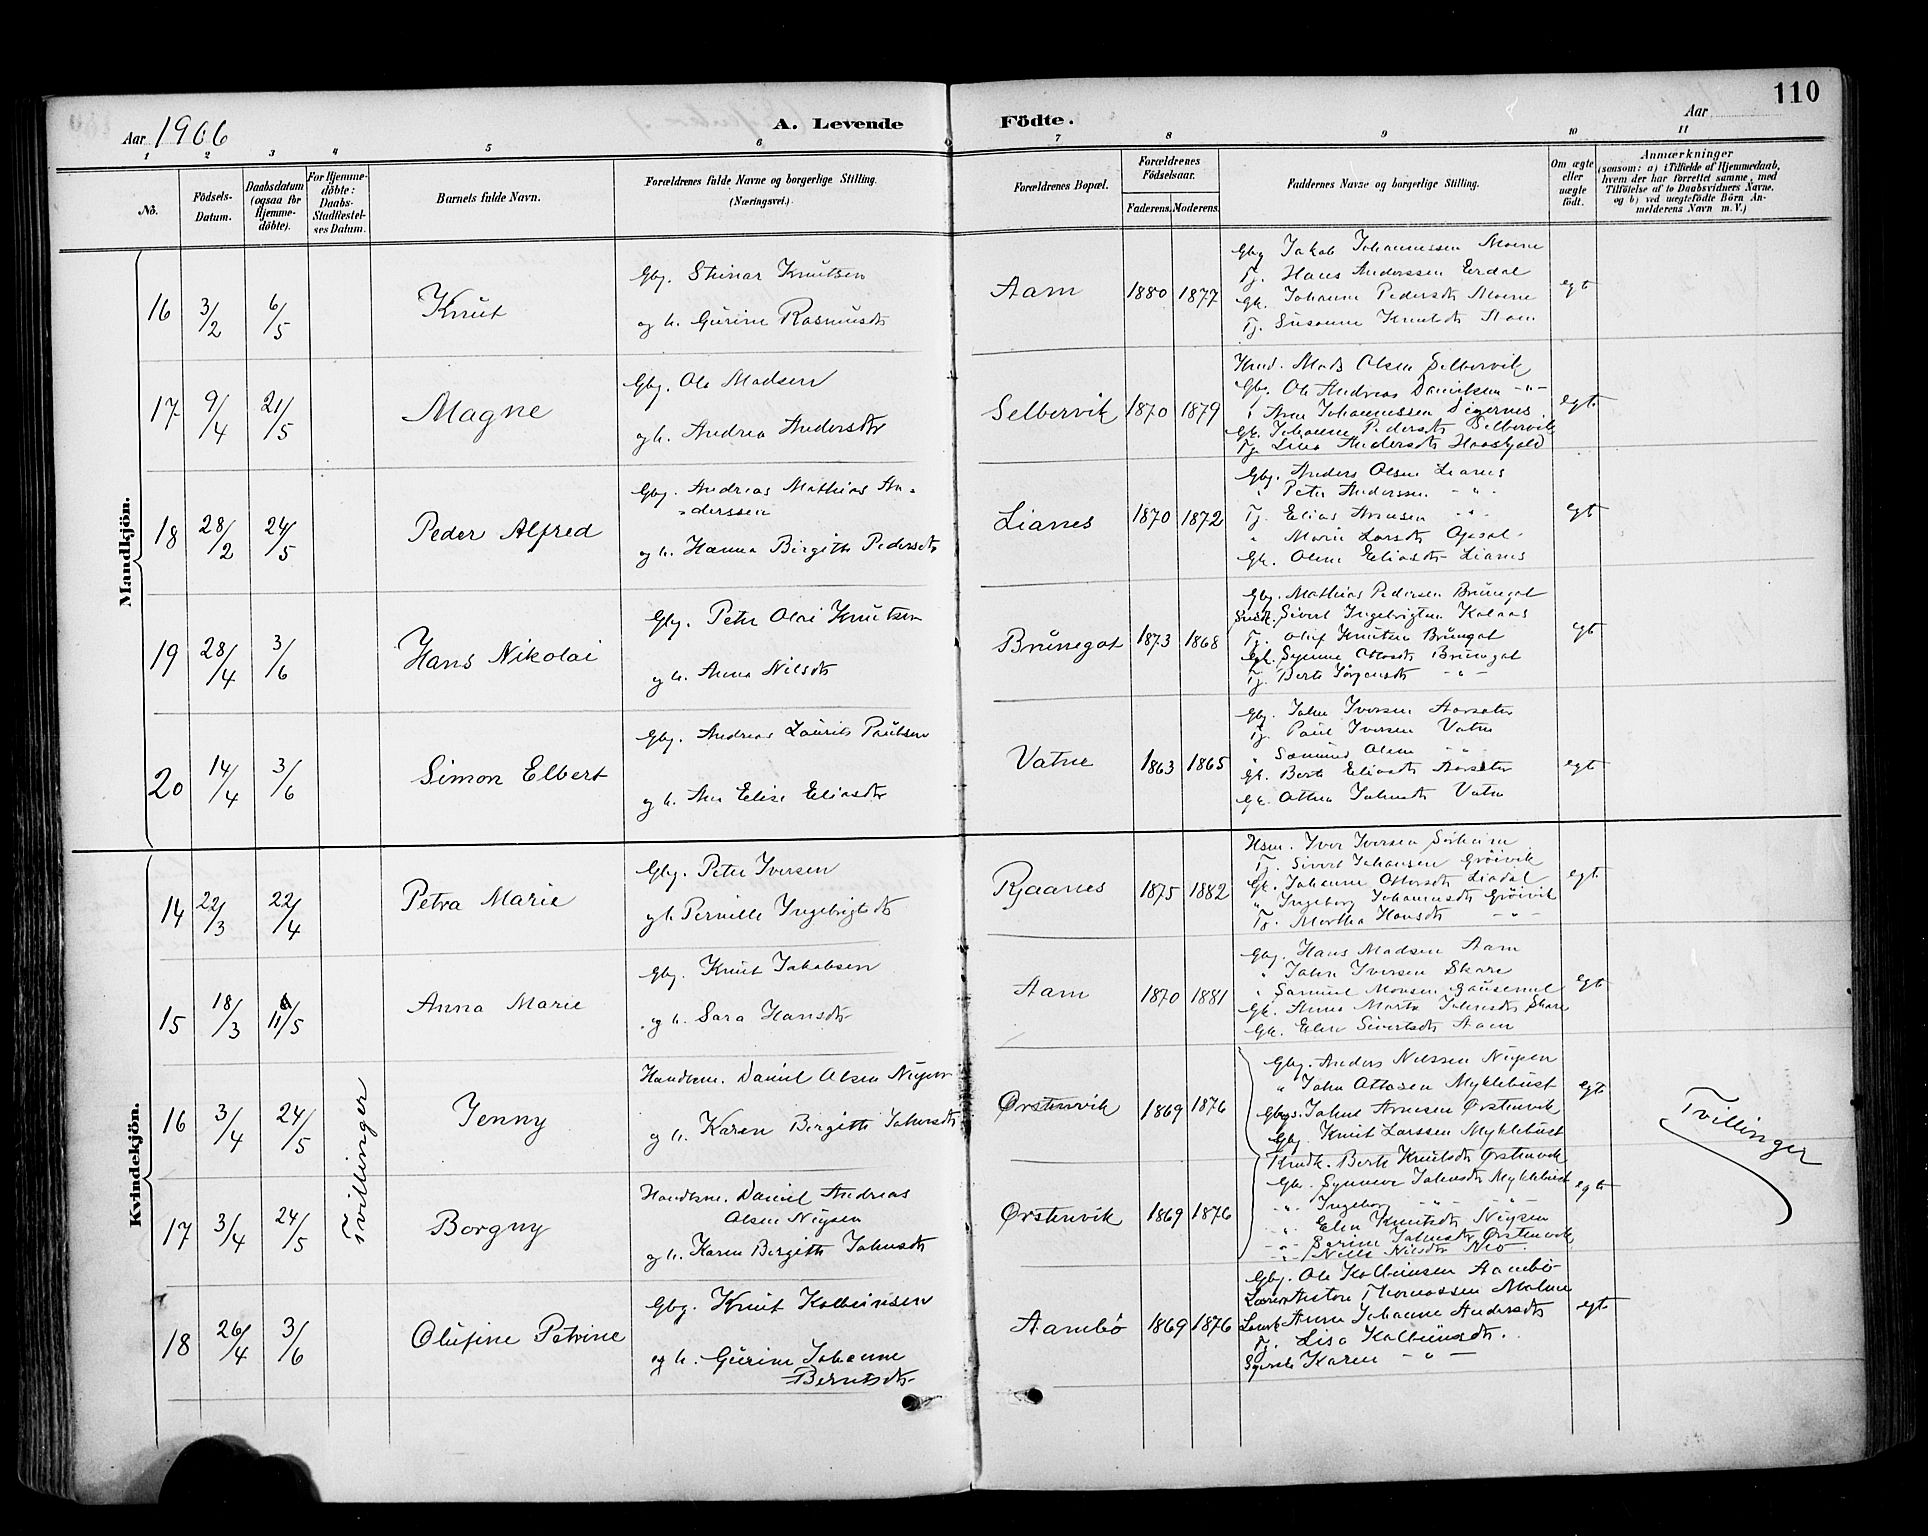 110
Aar 1906
A. Levende Födte.
Aar
1 2 3 4 5 6 7 8 9 10 11
No.
Födsels-
Datum.
Daabsdatum
(ogsaa for
Hjemme-
döbte).
For Hjemme-
döbte:
Daabs-
Stadfæstel-
ses Datum.
Barnets fulde Navn.
Forældrenes fulde Navne og borgerlige Stilling.
(Næringsvei.)
Forældrenes Bopæl.
Forældrenes
Födselsaar.
Faderens. Moderens.
Faddernes Navne og borgerlige Stilling.
Om ægte
eller
uægte
födt.
Anmærkninger
(saasom: a) i Tilfælde af Hjemmedaab,
hvem der har forrettet samme, med
Tilföielse af to Daabsvidners Navne.
og b) ved uægtefödte Börn An-
melderens Navn m. V.)
Mandkjön.
16 3/2 6/5 Knut
Gbg. Steinar Knutsen
og h. Gurine Rasmusdtr
Aam 1880 1877
Gbg Jakob Johannessen Moene
Tj. Hans Anderssen Eerdal
Gk. Johanne Pedersdtr Moene
Tj. Susanne Knutsdtr Aam
egt
17 9/4 21/5 Magne
Gbg. Ole Madsen
og h. Andrea Andersdtr
Selbervik 1870 1879
Mads Olsen Selbervik
Gbg. Ole Andreas Danielsen -"-
" Arne Johannessen Digernes.
Gk. Johanne Pedersdtr Selbervik
Tj. Lina Andersdtr
egt
18 28/2 24/5 Peder Alfred
Gbg. Andreas Mathias An-
derssen
og h. Hanna Birgitte Pedersdtr
Lianes 1870 1872
Gbg. Anders Olsen Lianes
" Peter Anderssen - " -
Tj. Elias Arnesen - " -
" Marie Larsdtr
Gk. Oline Eliasdtr Lianes
egt
19 28/4 3/6 Hans Nikolai
Gbg. Peter Olai Knutsen
og h. Anna Nilsdtr
Brunegot 1873 1868
Gbg. Mathias Pedersen Brunegot
Sivert Ingebrigtsen Kolaas
Tj. Oluf Knutsen Brunegot
Gk. Synnve Ottosdtr Brunegot
Tj. Berte Jörgensdtr - " -
egt
20 14/4 3/6 Simon Elbert
Gbg. Andreas Laurits Paulsen
og h. Ane Elise Eliasdtr
Vatne 1863 1865
Gbg. John Iversen Aarsæter
Tj. Paul Iversen Vatne
" Samuel Olsen " "
Gk. Berte Eliasdtr Aarsæter
Gk. Othea Johnsdtr Vatne
egt
Kvindekjön.
14 22/3 22/4 Petra Marie
Gbg. Peter Iversen
og h. Pernille Ingebrigtsdtr
Rjaanes 1875 1882
Hsm. Iver Iversen Sörheim
Tj. Sivert Johansen Gröivik
Gk. Johanne Ottersdtr Liadal
" Ingeborg Johannesdtr Gröivik
Tj. Martha Hansdtr - " -
egt
15 18/3 11/5 Anna Marie
Gbg. Knut Jakobsen
og h. Sara Hansdtr
Aam 1870 1881
Gbg. Hans Madsen Aam
" John Iversen Skare
" Samuel Monsen
Gk. Anna Marta Johnsdtr Skare
Gk. Elen Sivertsdtr Aam
egt
Tvillinger
16 3/4 24/5 Jenny
Handlsm. Daniel Olsen Nupen
og h. Karen Birgitte Johnsdtr
Ørstenvik 1869 1876
Gbg. Anders Nilssen Nupen
" John Ottosen Myklebust
Gbgs. Johan Arnesen Ørstenvik
Gbg. Knut Larssen Myklebust
egt
Tvillinger
17 3/4 24/5 Borgny
Handlsm. Daniel Andreas
Olsen Nupen
og h. Karen Birgitte Johnsdtr
Ørstenvik 1869 1876
Berte Knutsdtr Ørstenvik
Gk. Synnøve Johnsdtr Myklebust
-"- Ingeborg " "
-"- Elen Knutsdtr Nupen
-"- Johnsdtr Ørstenvik
-"- Nilsdtr
egt
18 26/4 3/6 Olufine Petrine
Gbg. Knut Kolbeinsen
og h. Gurine Johanne
Berntsdtr
Aambö 1869 1876
Gbg. Ole Kolbeinsen Aambö
Lærer Thomassen Malme
Anne Johanne Andersdtr
Tj. Lisa Kolbeinsdtr.
Karen - " -
egt